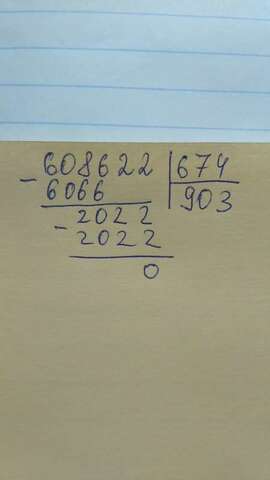 608622 | 674
- 6066 | 903
2022
- 2022
0